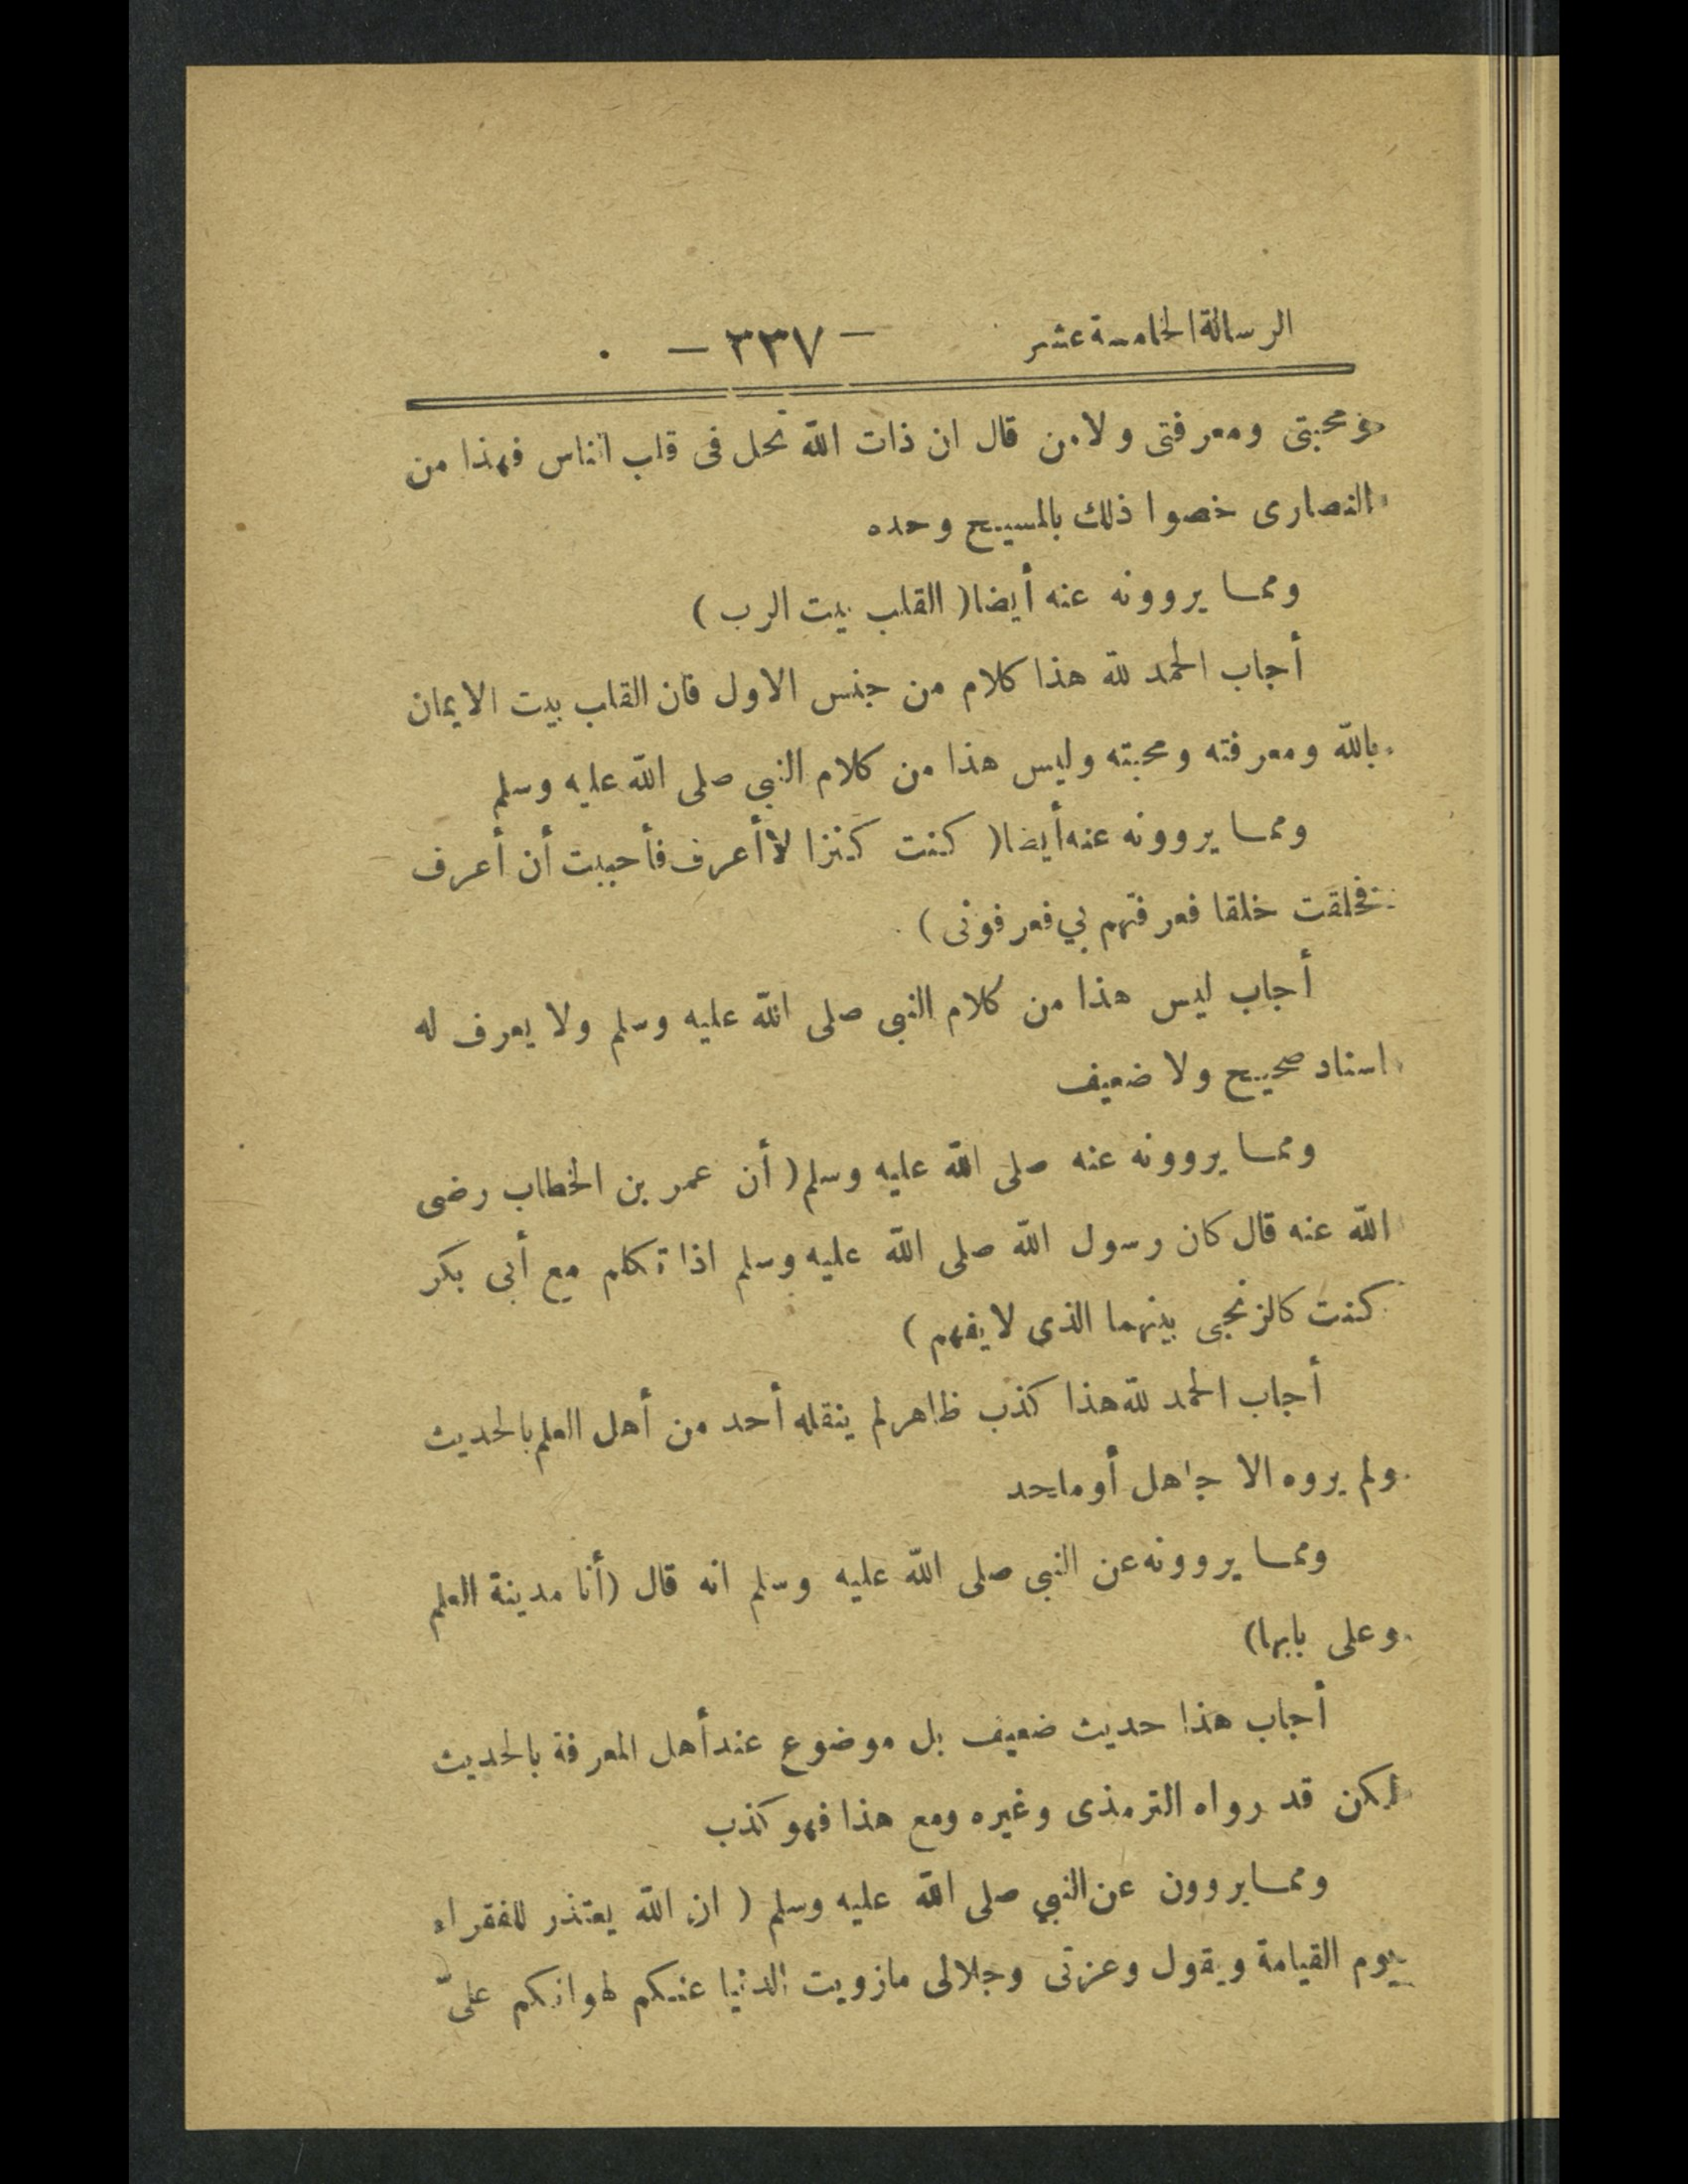 الرسالة الخامسة عشر — ٣٣٧ —
ومحبتى ومعرفتى ولا من قال ان ذات الله تحل فى قلب الناس فهذا من
النصارى خصوا ذلك بالمسيح وحده
ومما يروونه عنه أيضا ( القلب بيت الرب )
أجاب الحمد لله هذا كلام من جنس الاول فان القلب بيت الايمان
بالله ومعرفته ومحبته وليس هذا من كلام النبي صلى الله عليه وسلم
ومما يروونه عنه أيضا ( كنت كنزا لا أعرف فأحببت أن أعرف
فخلقت خلقا فعرفتهم بي فعرفونى )
أجاب ليس هذا من كلام النبي صلى الله عليه وسلم ولا يعرف له
اسناد صحيح ولا ضعيف
ومما يروونه عنه صلى الله عليه وسلم ( أن عمر بن الخطاب رضى
الله عنه قال كان رسول الله صلى الله عليه وسلم اذا تكلم مع أبى بكر
كنت كالزنجى بينهما الذى لا يفهم )
أجاب الحمد لله هذا كذب ظاهر لم ينقله أحد من أهل العلم بالحديث
ولم يروه الا جاهل أو ملحد
ومما يروونه عن النبى صلى الله عليه وسلم انه قال ( أنا مدينة العلم
وعلى بابها)
أجاب هذا حديث ضعيف بل موضوع عند أهل المعرفة بالحديث
لكن قد رواه الترمذى وغيره ومع هذا فهو كذب
ومما يروون عن النبي صلى الله عليه وسلم ( ان الله يعتذر للفقراء
يوم القيامة ويقول وعزتى وجلالى مازويت الدنيا عنكم لهوانكم علىّ